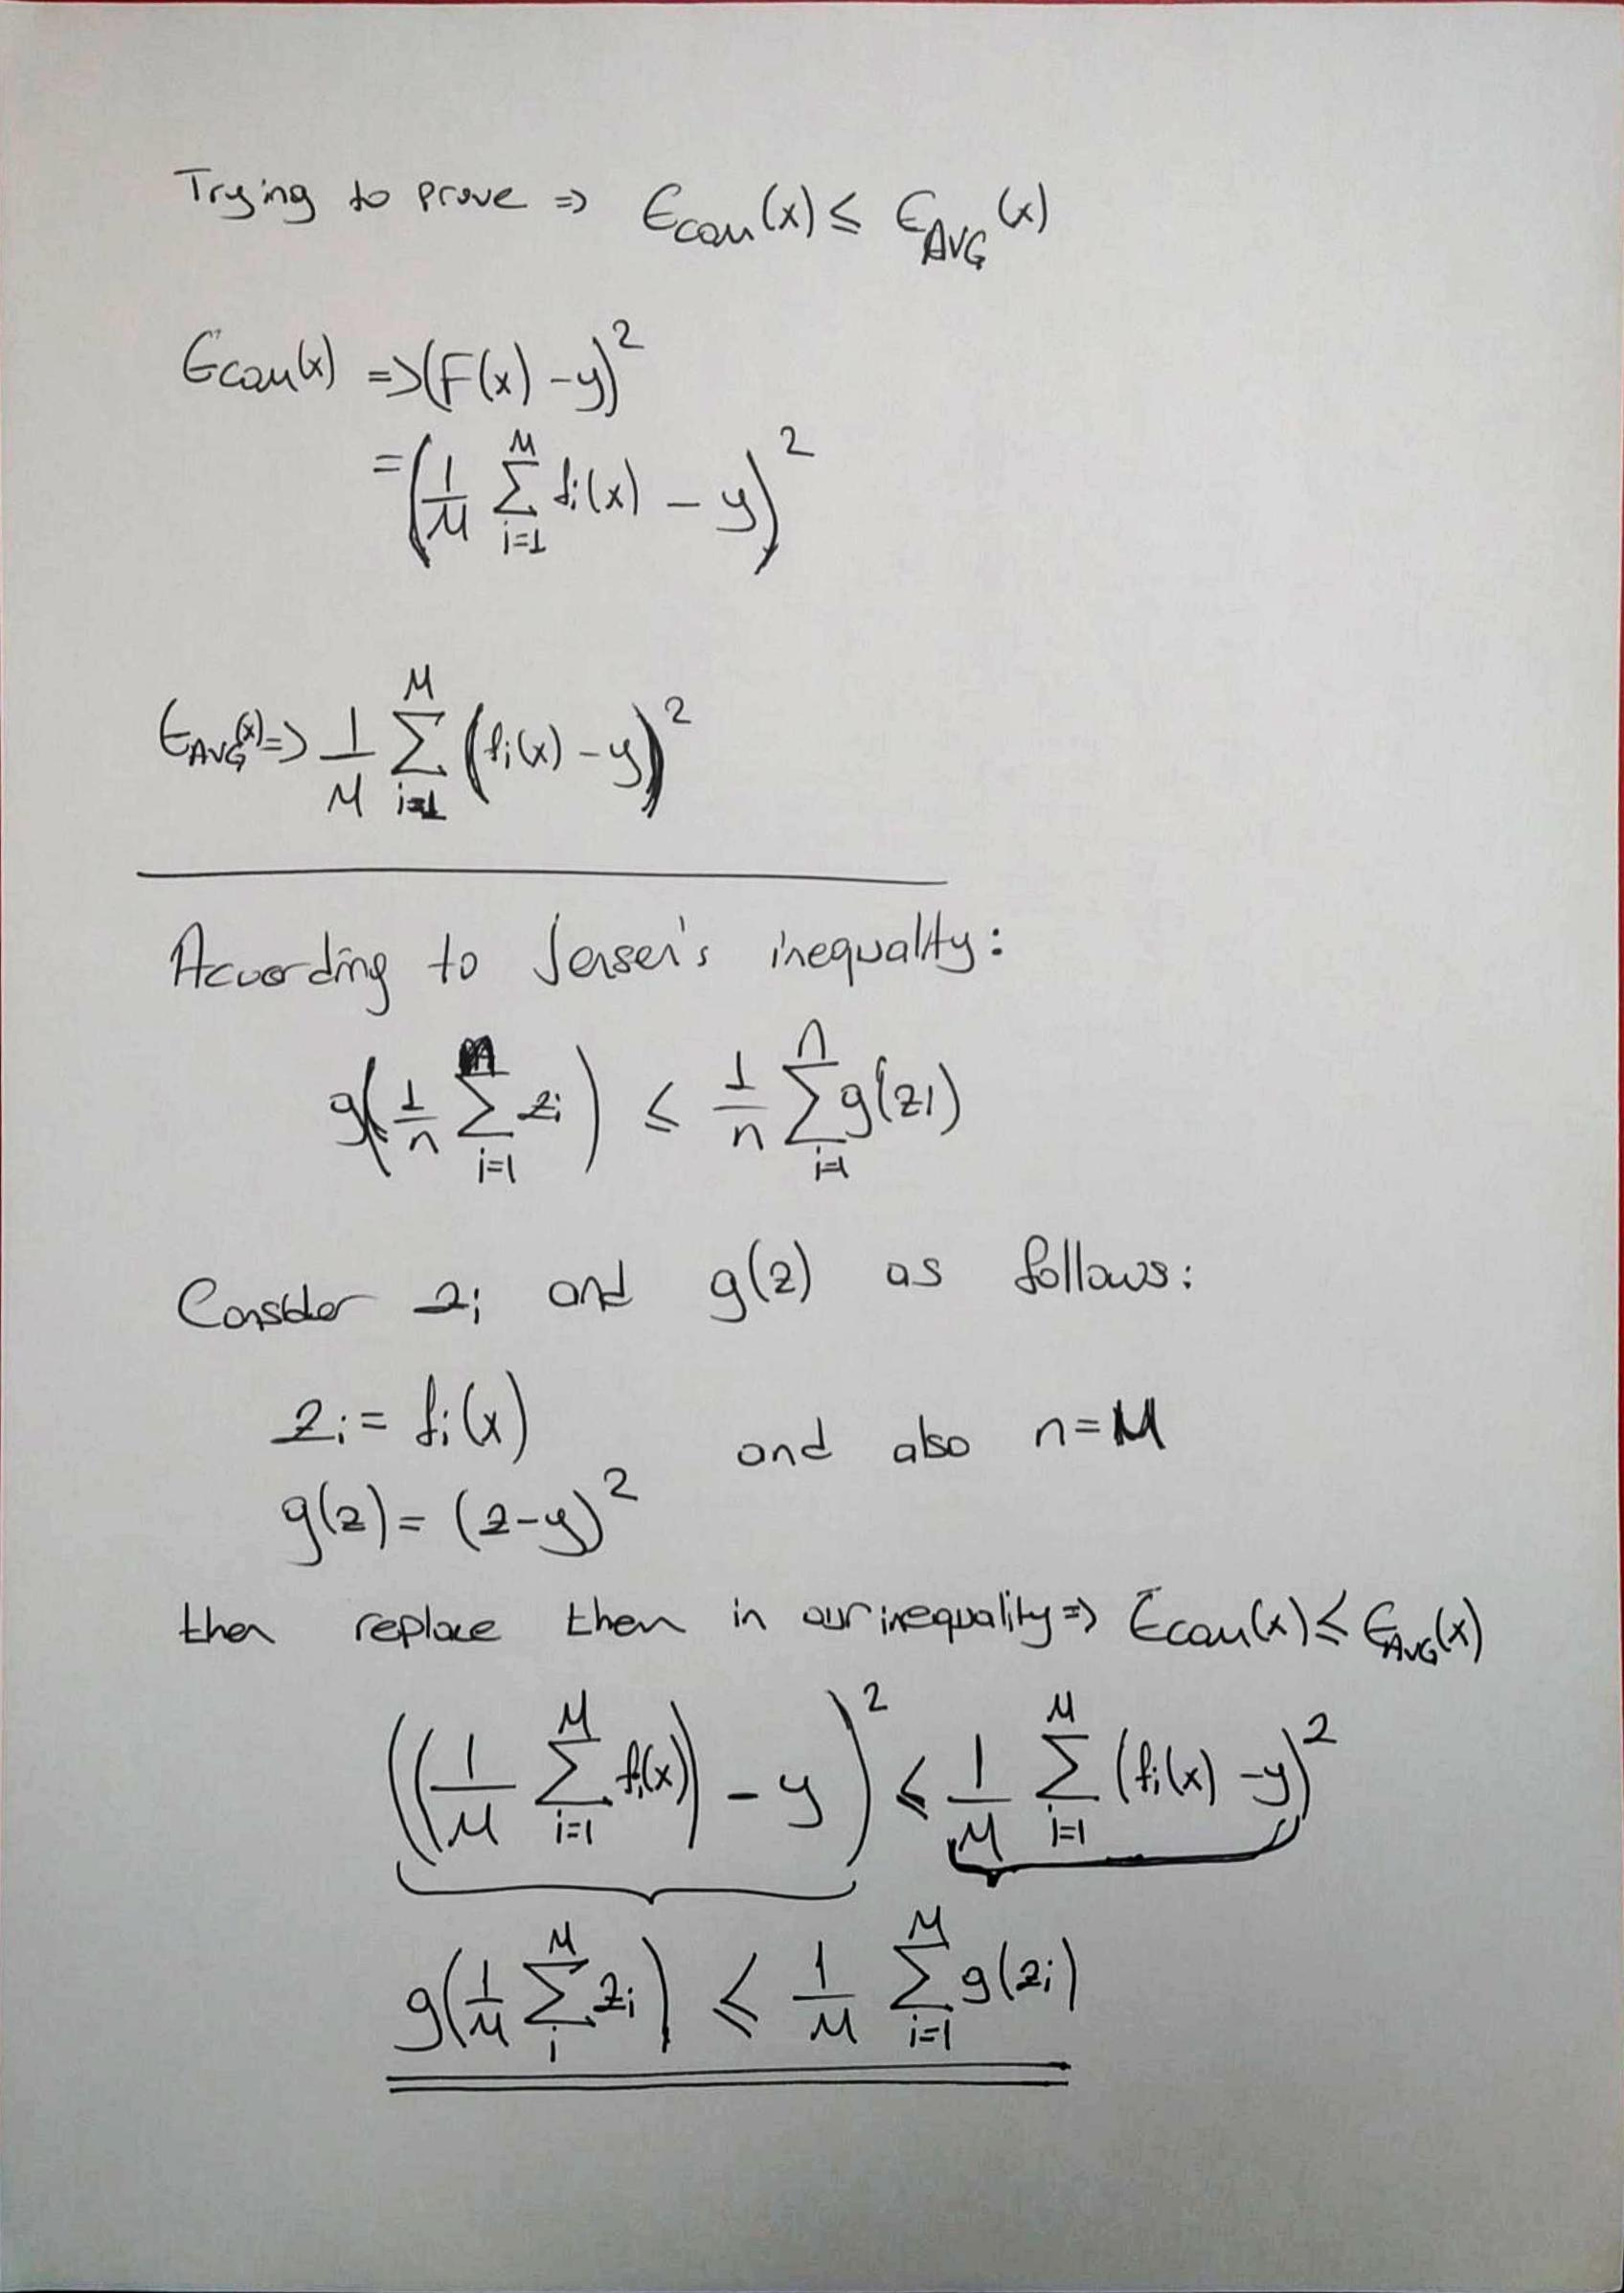 Trying to prove ⇒ E_com(x) ≤ E_AVG(x)
E_com(x) ⇒ (F(x) - y)²
= (1/M Σ_{i=1}^{M} f_i(x) - y)²
E_AVG(x) ⇒ 1/M Σ_{i=1}^{M} (f_i(x) - y)²
According to Jensen's inequality:
g(1/n Σ_{i=1}^{n} z_i) ≤ 1/n Σ_{i=1}^{n} g(z_i)
Consider z_i and g(z) as follows:
z_i = f_i(x) and also n = M
g(z) = (z - y)²
then replace then in our inequality ⇒ E_com(x) ≤ E_AVG(x)
((1/M Σ_{i=1}^{M} f_i(x)) - y)² ≤ 1/M Σ_{i=1}^{M} (f_i(x) - y)²
g(1/M Σ_{i}^{M} z_i) ≤ 1/M Σ_{i=1}^{M} g(z_i)